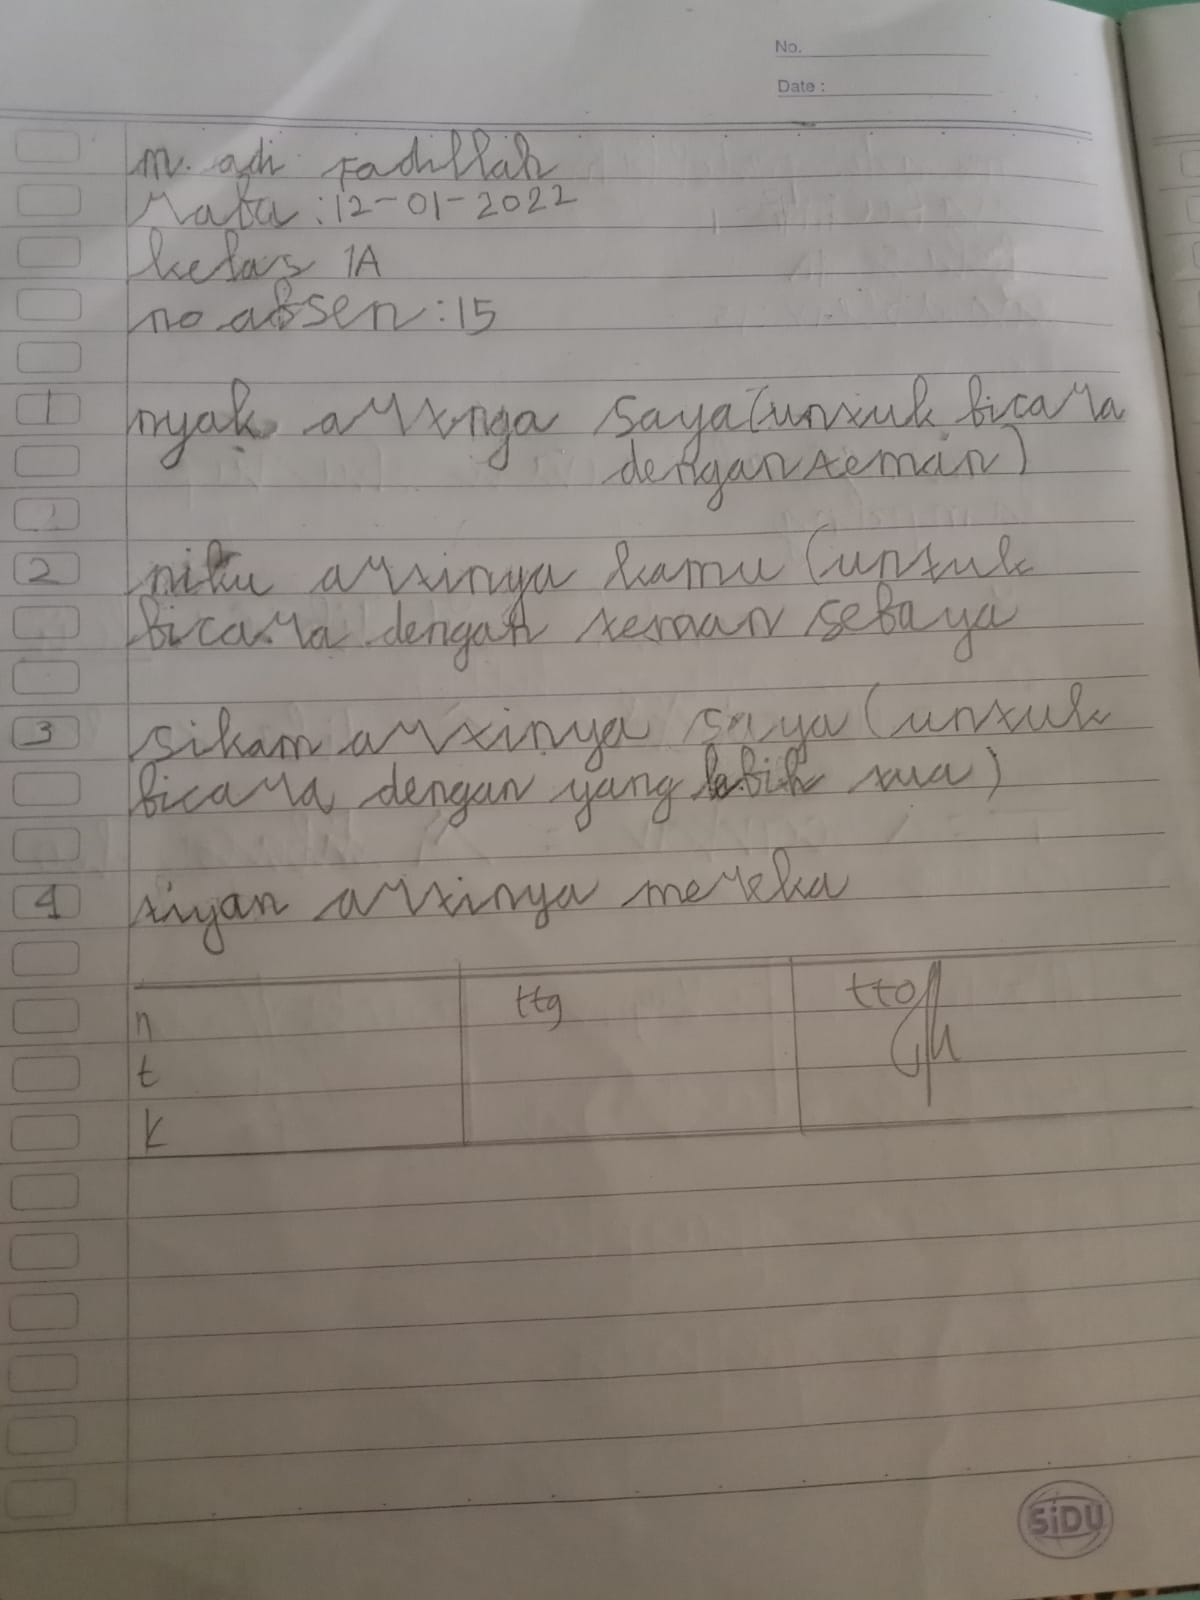 No.
Date :
m. adi Fadillah
Rabu : 12-01-2022
kelas 1A
no absen : 15
1 nyak artinya saya (untuk bicara
dengan teman)
2 niku artinya kamu (untuk
bicara dengan teman sebaya
3 sikam artinya saya (untuk
bicara dengan yang lebih tua)
4 tiyan artinya mereka
n ttg tto
t
k
SiDU